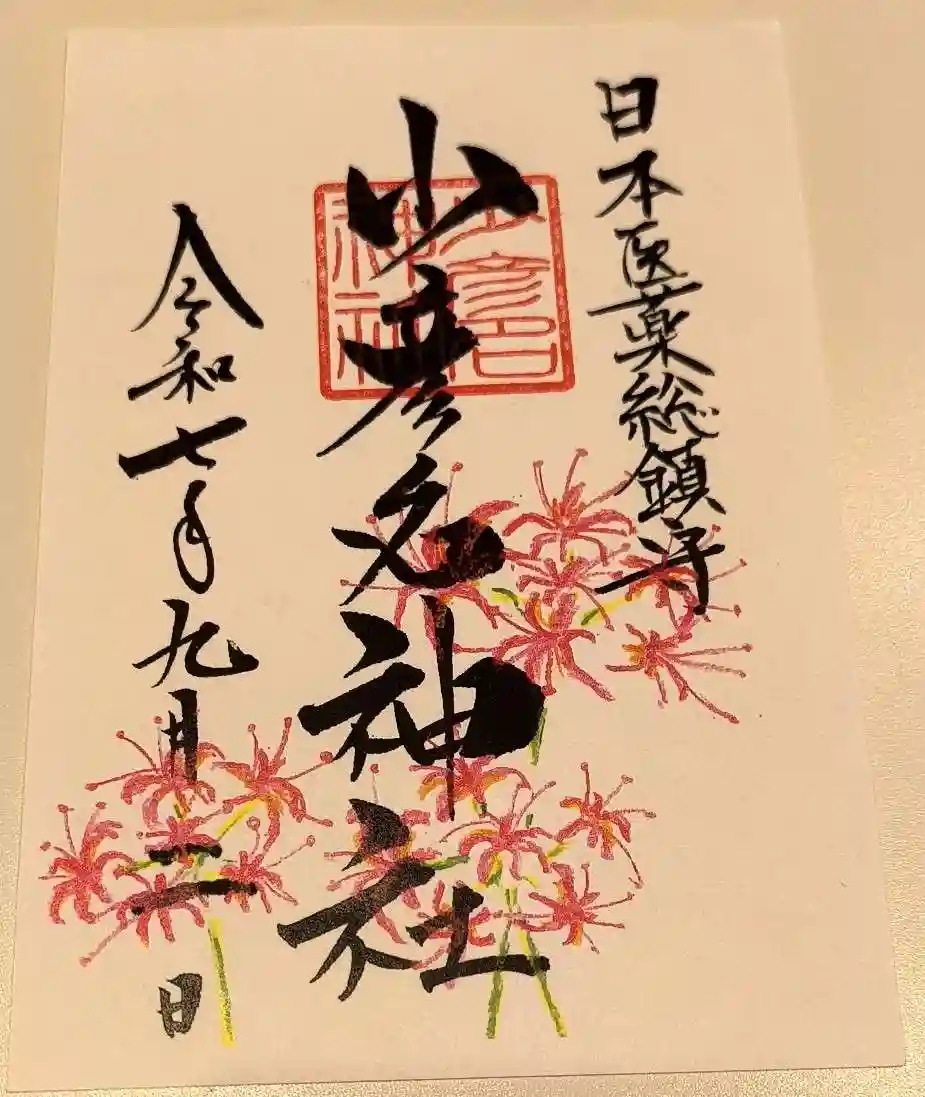 日本医薬総鎮守
少彦名神社
少彦名神社
令和七年九月二日